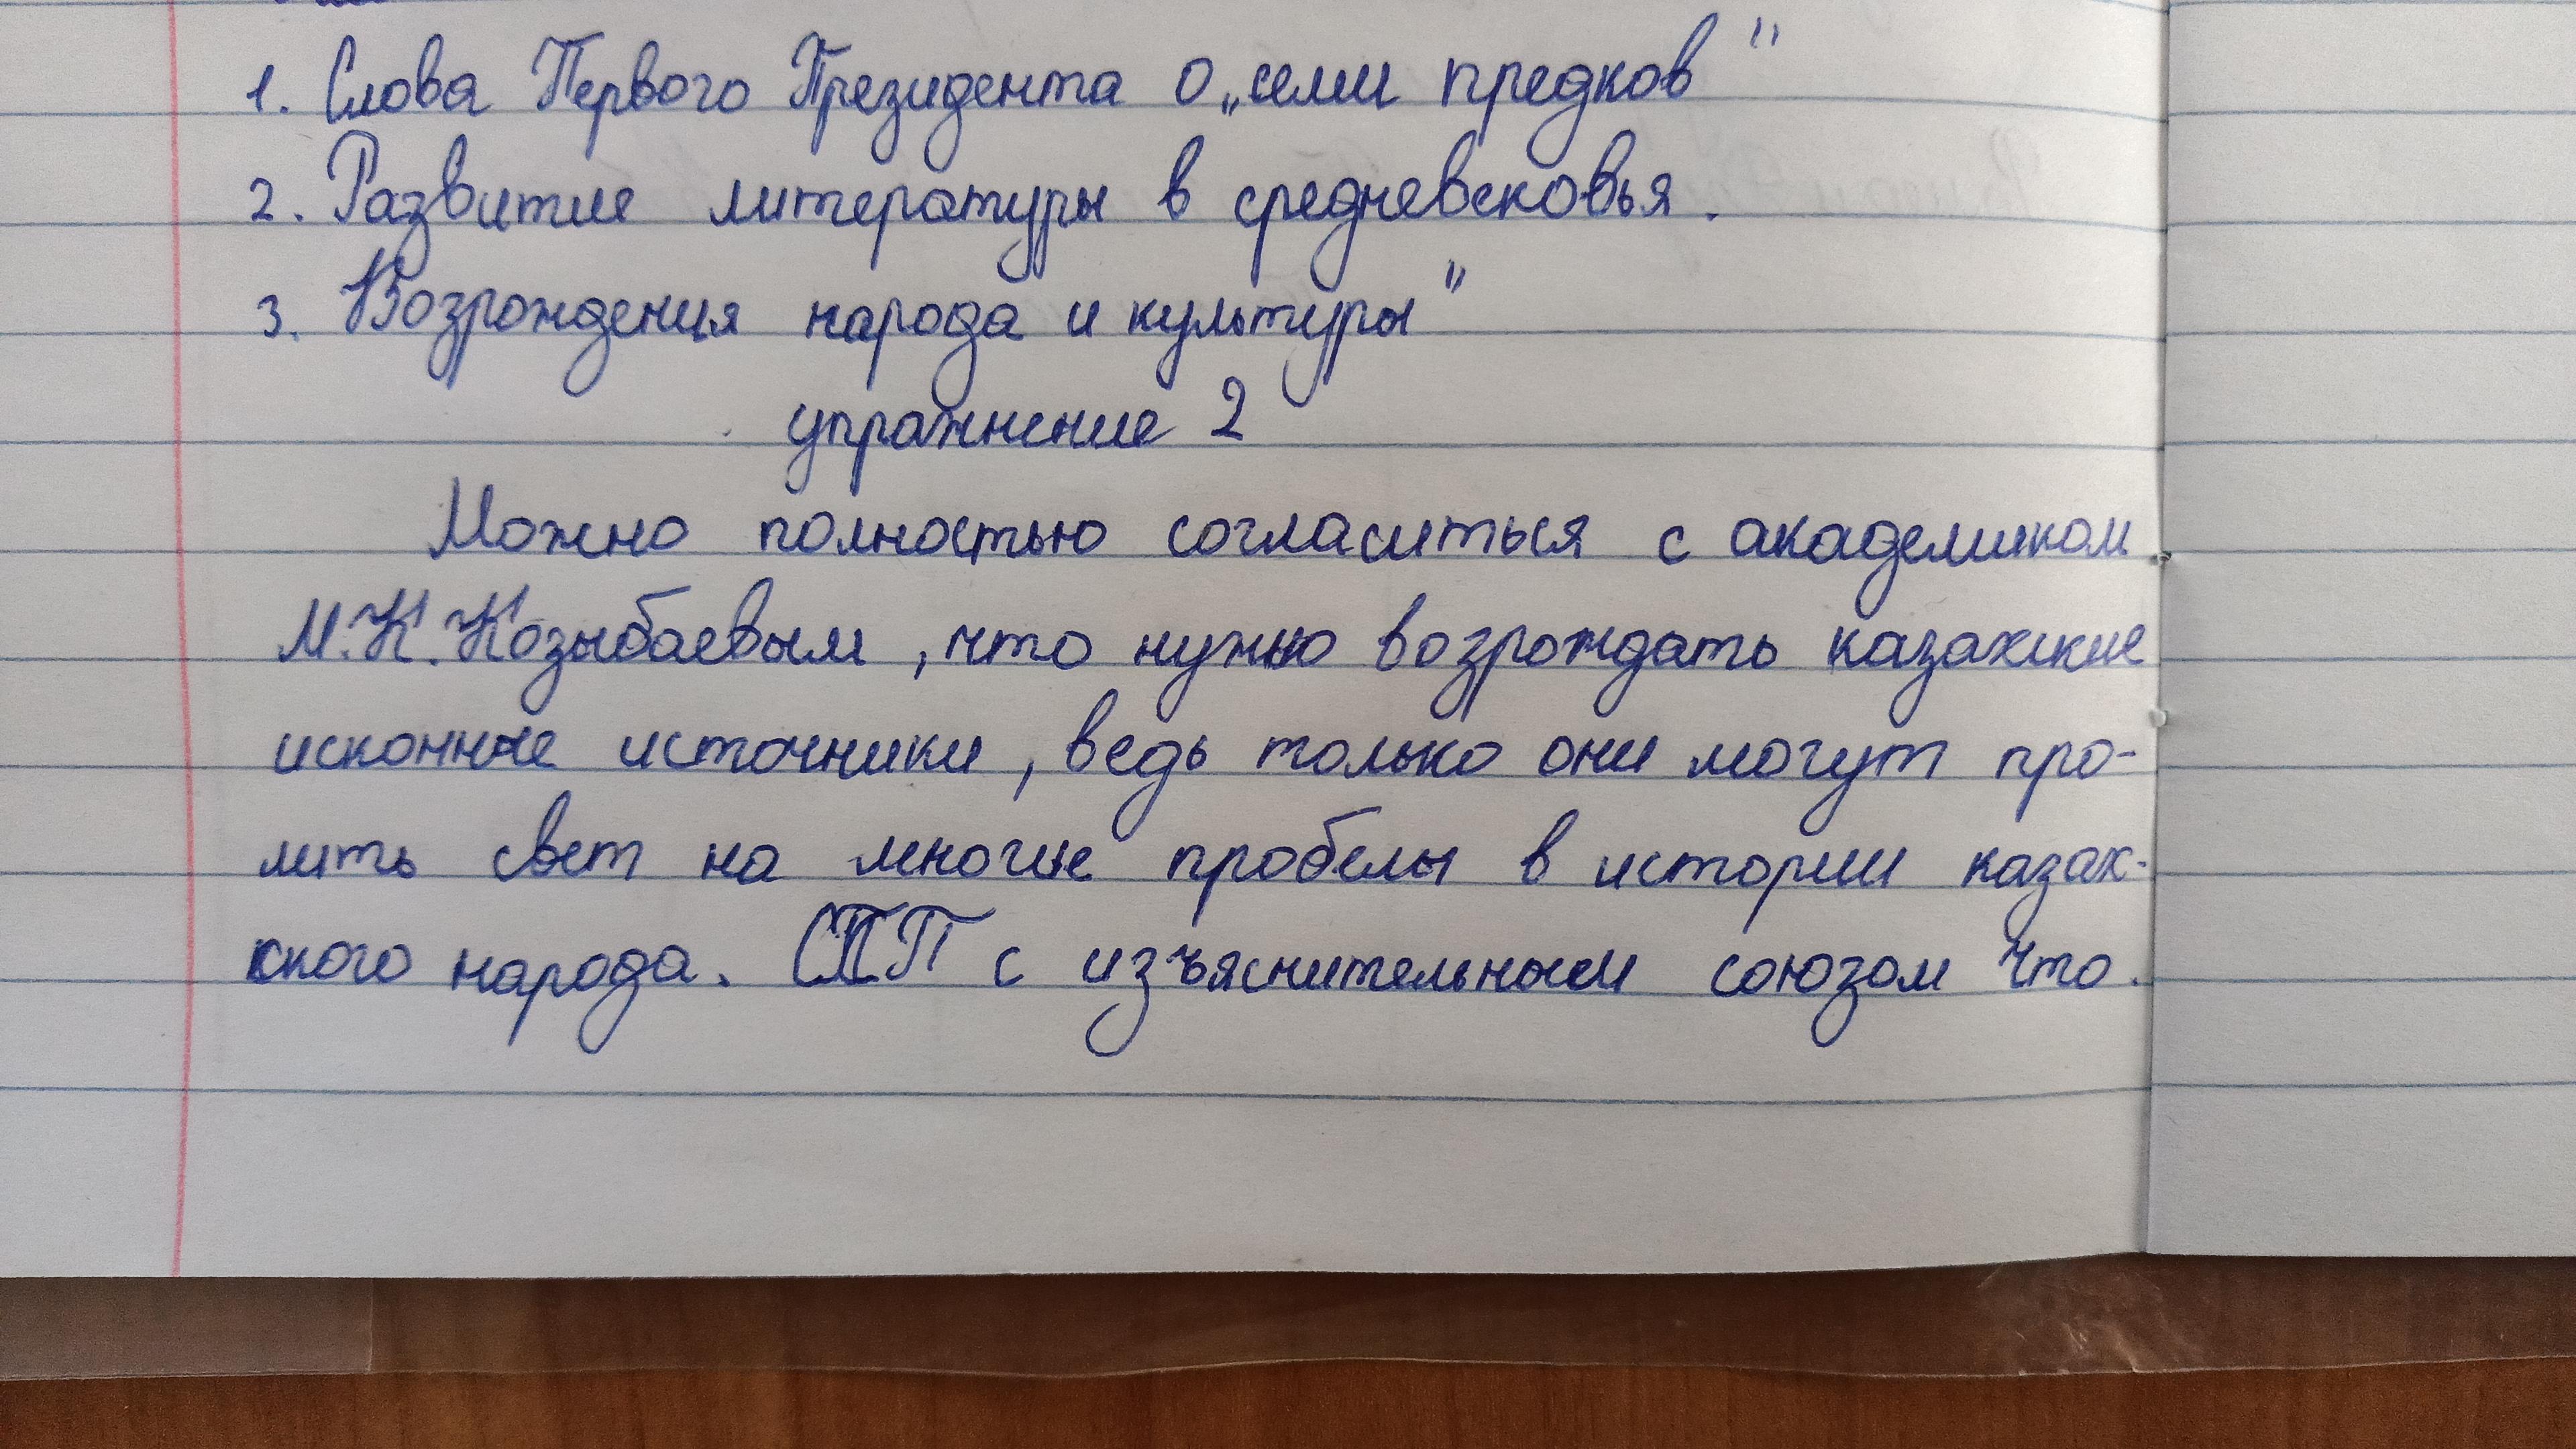 1. Слова Первого Президента о „семи предков"
2. Развитие литературы в средневековья.
3. Возрождения народа и культуры"
упражнение 2
Можно полностью согласиться с академиком
М.К.Козыбаевым, что нужно возрождать казахские
исконные источники, ведь только они могут про-
лить свет на многие пробелы в истории казах-
ского народа. СПП с изъяснительным союзом что.